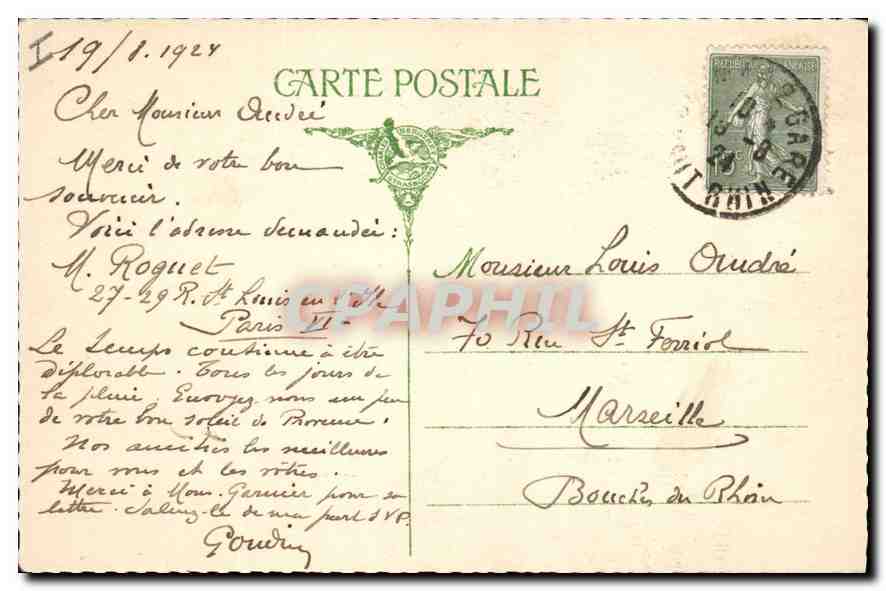 I 19/8.1924
CARTE POSTALE
Cher Monsieur André
Merci de votre bon
souvenir.
Voici l'adresse demandée:
M. Roguet
27-29 R. St Louis en l'Ile
Paris
Le temps continue à être
déplorable. Tous les jours de
la pluie. Envoyez nous un peu
de votre bon soleil de Provence!
Nos amitiés les meilleures
pour vous et les vôtres.
Merci à Mons. Garnier pour sa
lettre. Saluez-le de ma part SVP.
REPUBLIQUE FRANÇAISE
GARE
HAUT RHIN
CPAPHIL
Monsieur Louis André
70 Rue St Ferriol
Marseille
Bouches du Rhône